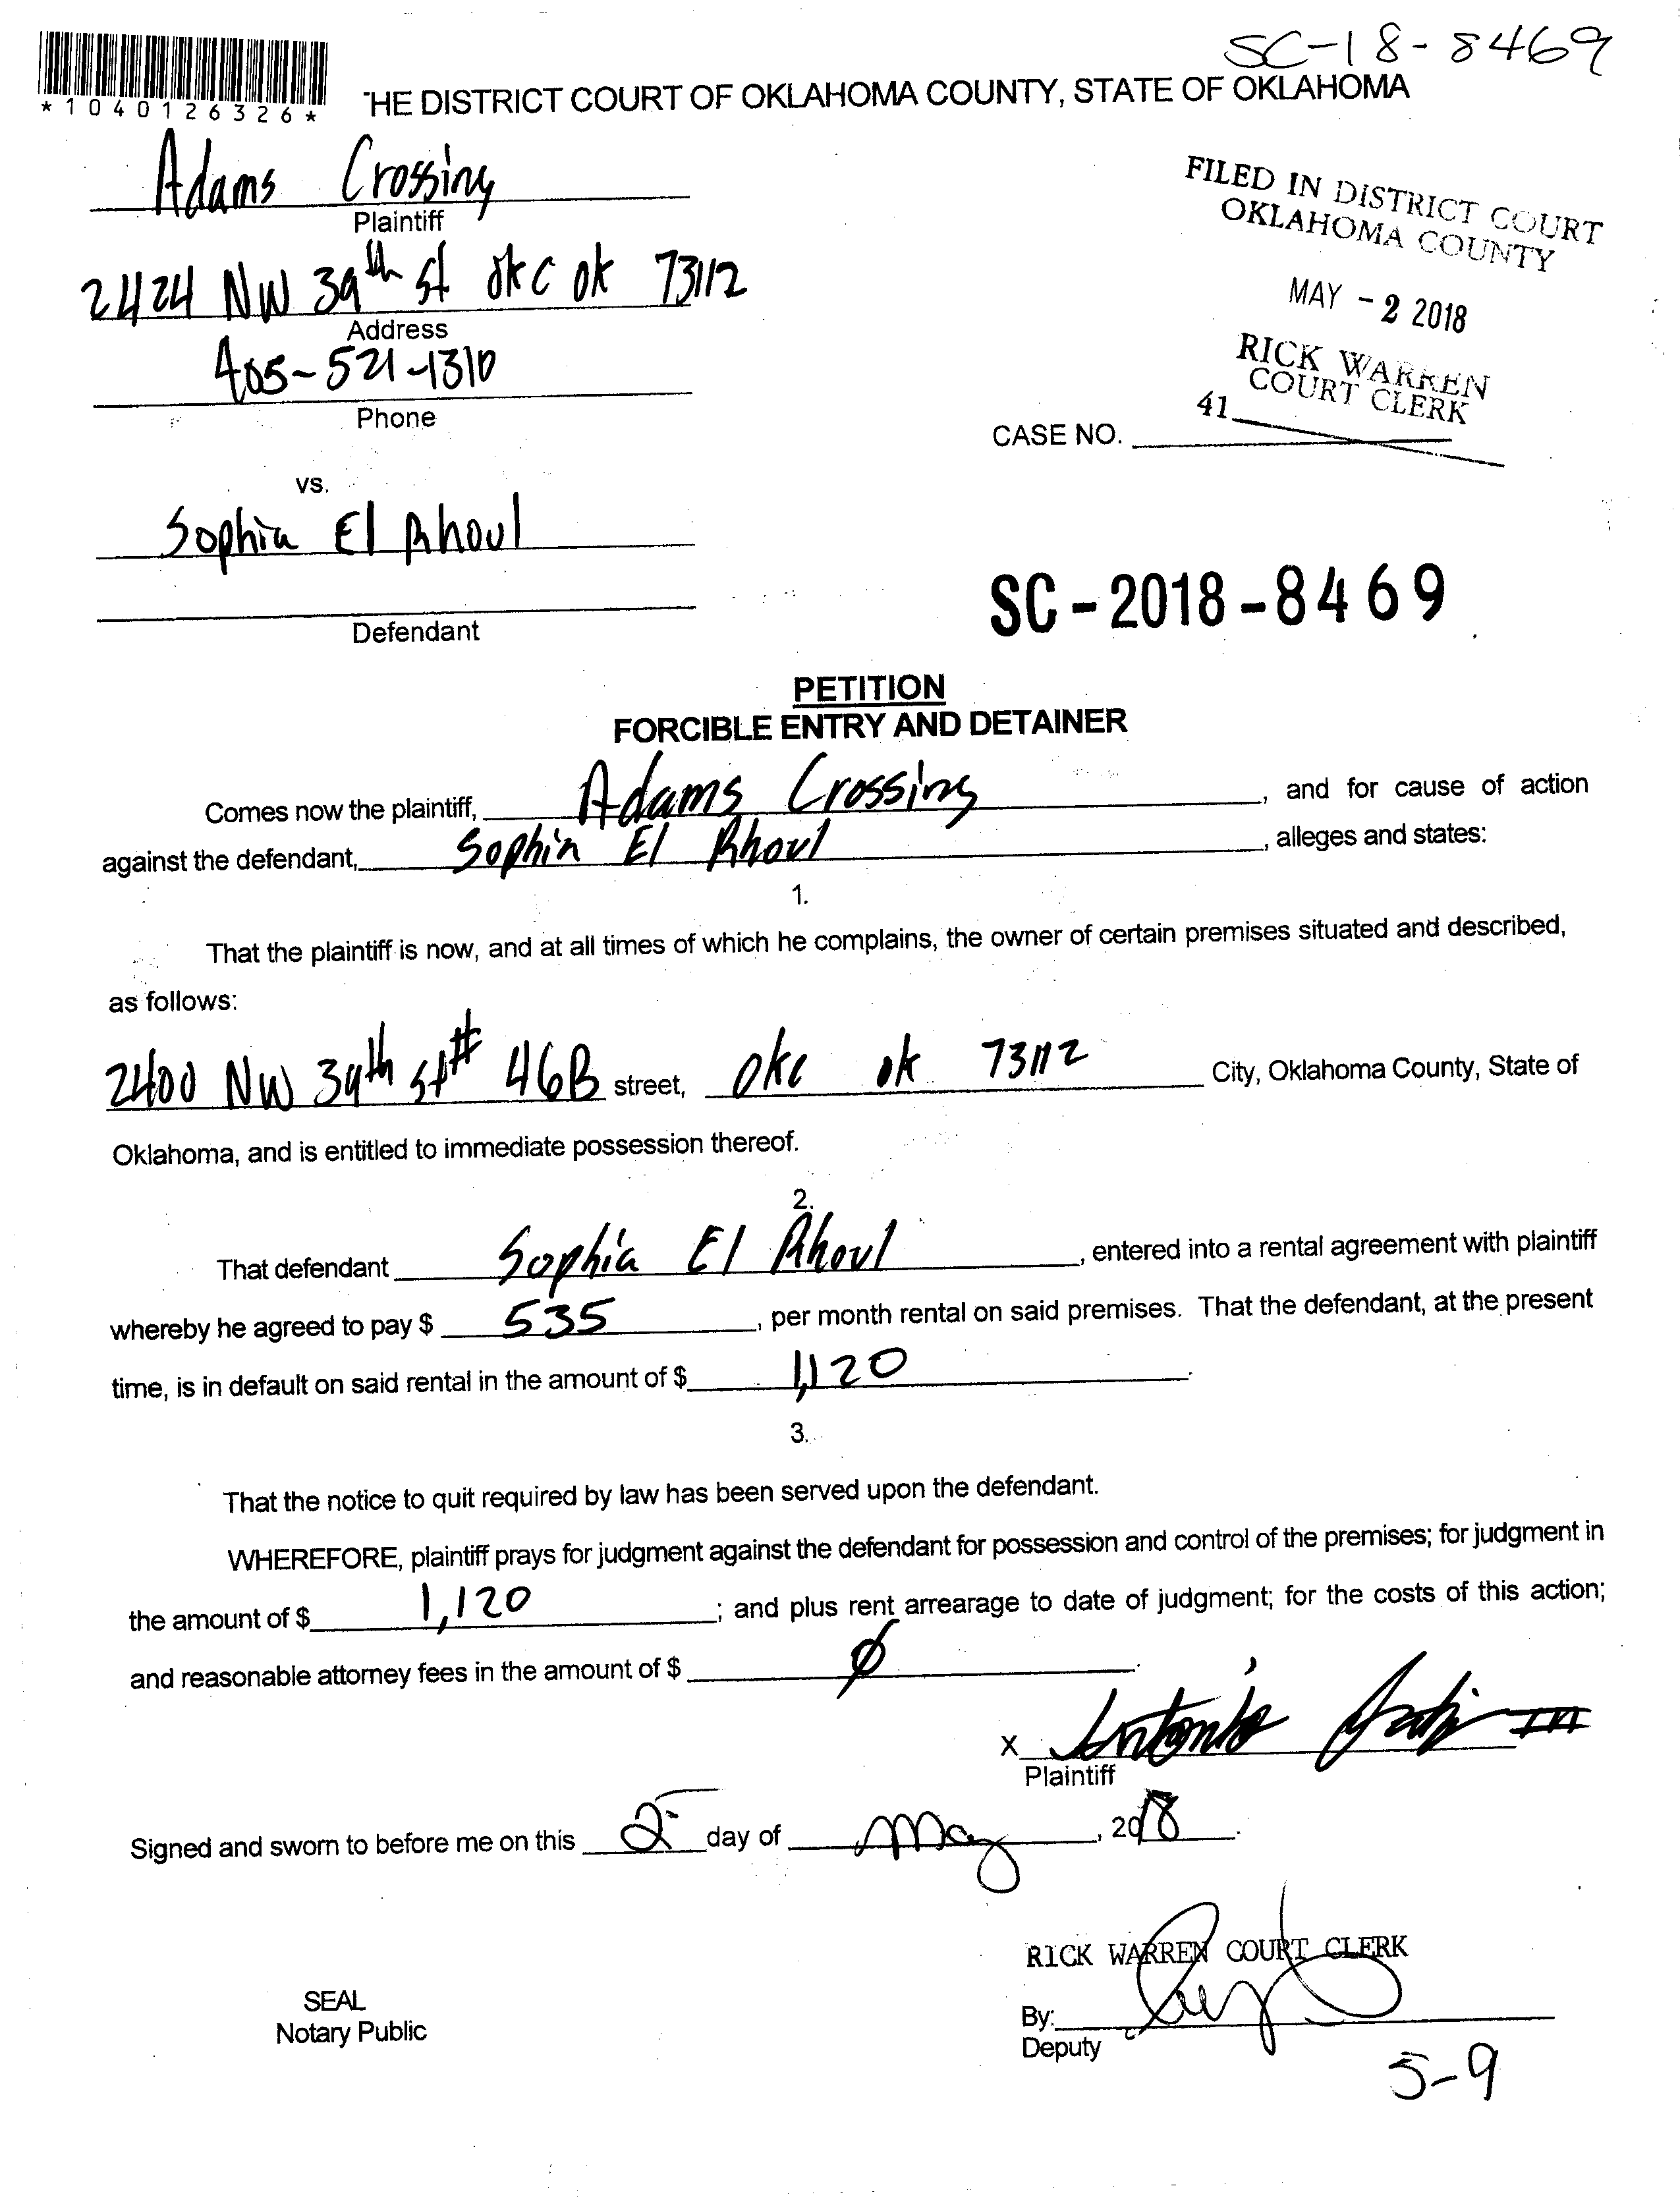 SC-18-8469
*1040126326*
HE DISTRICT COURT OF OKLAHOMA COUNTY, STATE OF OKLAHOMA
Adams Crossing
Plaintiff
2424 NW 39th St okc ok 73112
Address
405-521-1310
Phone
FILED IN DISTRICT COURT
OKLAHOMA COUNTY
MAY - 2 2018
RICK WARREN
COURT CLERK
41
CASE NO.
vs.
Sophia El Rhoul
Defendant
SC-2018-8469
PETITION
FORCIBLE ENTRY AND DETAINER
Comes now the plaintiff, Adams Crossing, and for cause of action
against the defendant, Sophia El Rhoul, alleges and states:
1.
That the plaintiff is now, and at all times of which he complains, the owner of certain premises situated and described,
as follows:
2400 NW 39th St # 46B street, okc ok 73112 City, Oklahoma County, State of
Oklahoma, and is entitled to immediate possession thereof.
2.
That defendant Sophia El Rhoul, entered into a rental agreement with plaintiff
whereby he agreed to pay $ 535, per month rental on said premises. That the defendant, at the present
time, is in default on said rental in the amount of $ 1,120.
3.
That the notice to quit required by law has been served upon the defendant.
WHEREFORE, plaintiff prays for judgment against the defendant for possession and control of the premises; for judgment in
the amount of $ 1,120; and plus rent arrearage to date of judgment; for the costs of this action;
and reasonable attorney fees in the amount of $ Ø.
X Antonio III
Plaintiff
Signed and sworn to before me on this 2 day of May, 2018.
RICK WARREN COURT CLERK
SEAL
Notary Public
By:
Deputy
5-9